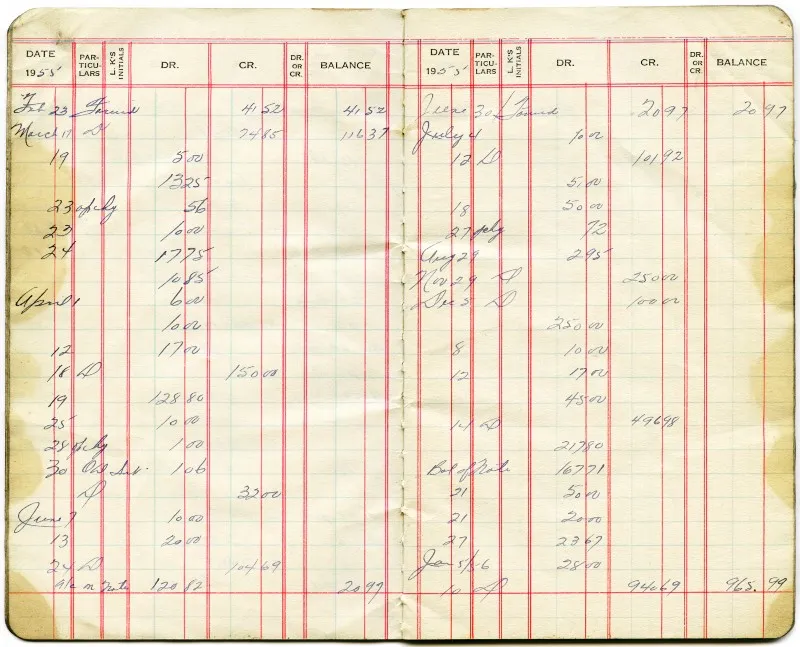 DATE 1955 PARTICULARS L. K'S INITIALS DR. CR. DR. OR CR. BALANCE
Feb 23 Forward 41 52 41 52
March 17 D 74 85 116 37
19 5 00
13 25
23 56
23 10 00
24 17 75
10 85
April 1 6 00
10 00
12 17 00
18 D 150 00
19 128 80
25 10 00
28 1 00
30 1 06
D 32 00
June 7 10 00
13 20 00
24 D 104 69
on Note 120 82 20 97
DATE 1955 PARTICULARS L. K'S INITIALS DR. CR. DR. OR CR. BALANCE
June 30 Forward 20 97 20 97
July 4 10 00
12 D 101 92
5 00
18 50 00
27 72
Aug 29 2 95
Nov 29 D 250 00
Dec 5 D 100 00
250 00
8 10 00
12 17 00
45 00
14 D 496 98
217 80
Bal of Note 167 71
21 50 00
21 20 00
27 23 67
Jan 5/56 28 00
10 D 940 69 965.99